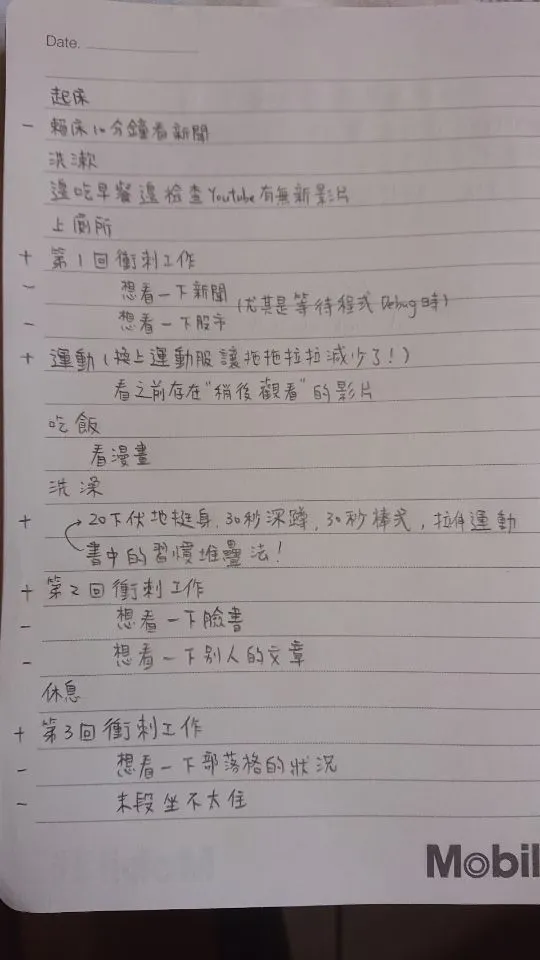 Date.
起床
- 賴床10分鐘看新聞
洗漱
邊吃早餐邊檢查Youtube有無新影片
上廁所
+ 第1回衝刺工作
- 想看一下新聞
(尤其是等待程式Debug時)
- 想看一下股市
+ 運動(換上運動服讓拖拖拉拉減少了!)
看之前存在"稍後觀看"的影片
吃飯
看漫畫
洗澡
+ →20下伏地挺身,30秒深蹲,30秒棒式,拉伸運動
書中的習慣堆疊法!
+ 第2回衝刺工作
- 想看一下臉書
- 想看一下別人的文章
休息
+ 第3回衝刺工作
- 想看一下部落格的狀況
- 末段坐不太住
Mobil